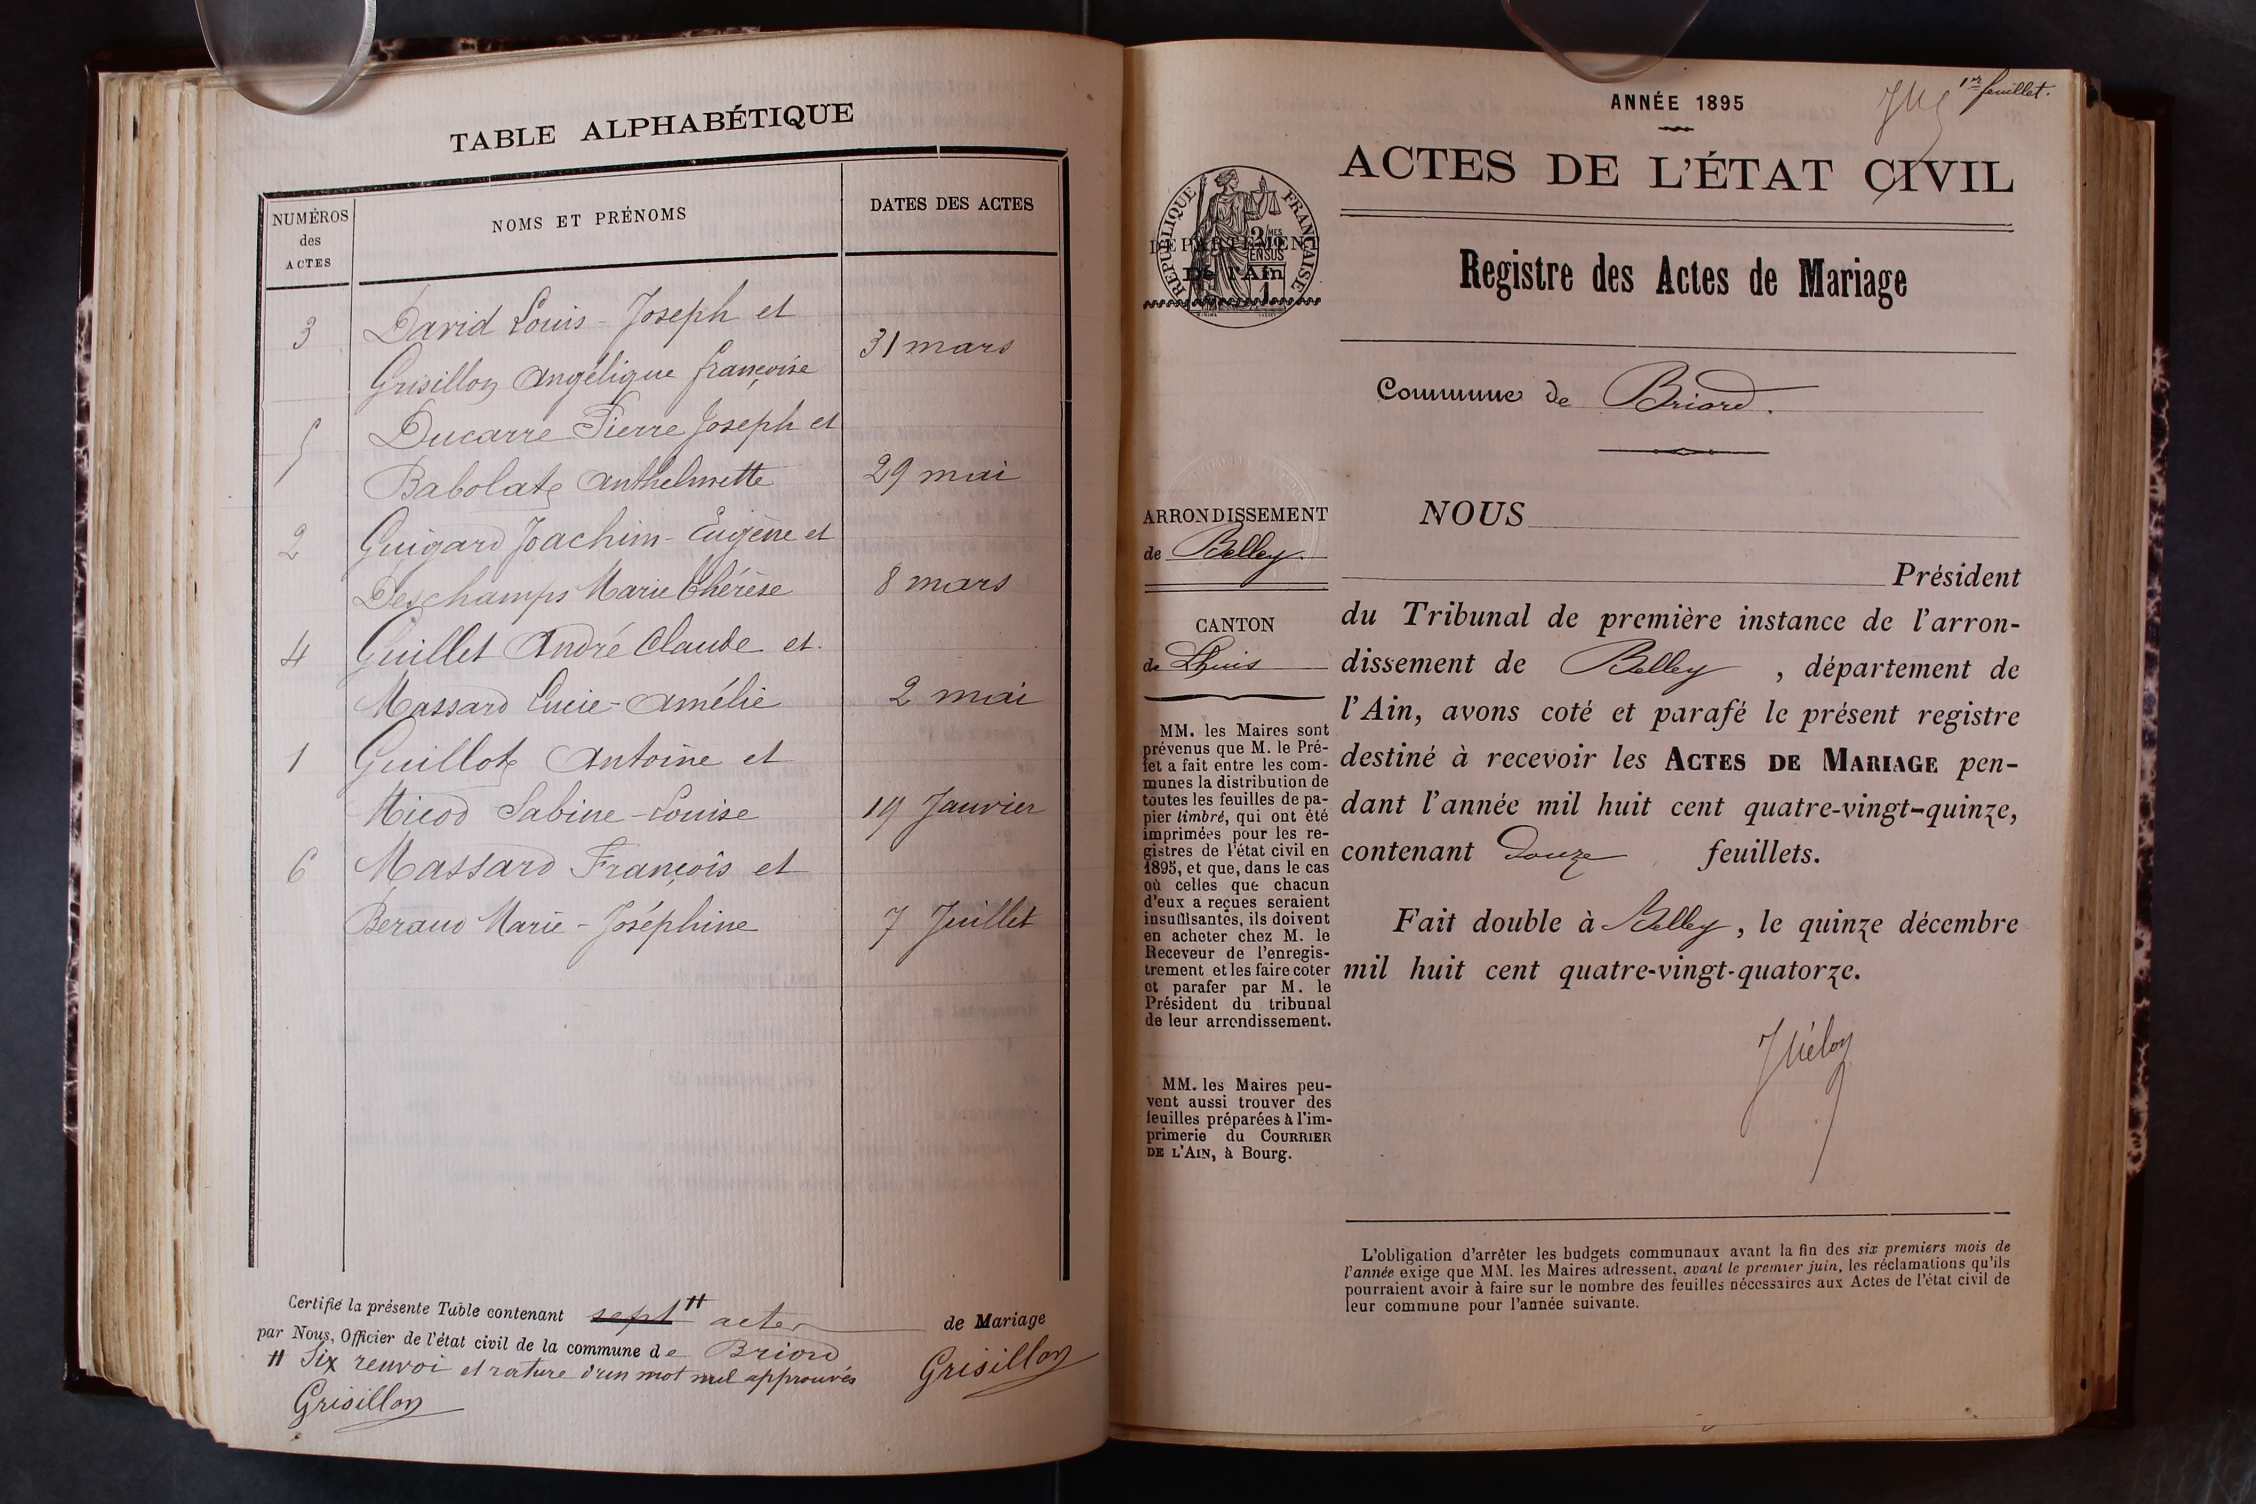 TABLE ALPHABÉTIQUE
NUMÉROS
des
ACTES
NOMS ET PRÉNOMS
DATES DES ACTES
3 David Louis-Joseph et
Grisillon Angélique françoise 31 mars
5 Ducarre Pierre Joseph et
Babolat Anthelmette 29 mai
2 Guigard Joachim-Eugène et
Deschamps Marie Thérèse 8 mars
4 Guillet André Claude et
Massard Lucie-Amélie 2 mai
1 Guillot Antoine et
Micod Sabine-Louise 19 Janvier
6 Massard François et
Beraud Marie-Joséphine 7 Juillet
Certifié la présente Table contenant sept # actes de Mariage
par Nous, Officier de l'état civil de la commune de Briord
# Six renvoi et rature d'un mot nul approuvés
Grisillon
Grisillon
1er feuillet.
ANNÉE 1895
ACTES DE L'ÉTAT CIVIL
RÉPUBLIQUE FRANÇAISE
DÉPARTEMENT
DE l'Ain
Registre des Actes de Mariage
Commune de Briord.
ARRONDISSEMENT
de Belley.
CANTON
de Lhuis
MM. les Maires sont
prévenus que M. le Pré-
fet a fait entre les com-
munes la distribution de
toutes les feuilles de pa-
pier timbré, qui ont été
imprimées pour les re-
gistres de l'état civil en
1895, et que, dans le cas
où celles que chacun
d'eux a reçues seraient
insuffisantes, ils doivent
en acheter chez M. le
Receveur de l'enregis-
trement et les faire coter
et parafer par M. le
Président du tribunal
de leur arrondissement.
MM. les Maires peu-
vent aussi trouver des
feuilles préparées à l'im-
primerie du COURRIER
DE L'AIN, à Bourg.
NOUS
Président
du Tribunal de première instance de l'arron-
dissement de Belley, département de
l'Ain, avons coté et parafé le présent registre
destiné à recevoir les ACTES DE MARIAGE pen-
dant l'année mil huit cent quatre-vingt-quinze,
contenant douze feuillets.
Fait double à Belley, le quinze décembre
mil huit cent quatre-vingt-quatorze.
L'obligation d'arrêter les budgets communaux avant la fin des six premiers mois de
l'année exige que MM. les Maires adressent, avant le premier juin, les réclamations qu'ils
pourraient avoir à faire sur le nombre des feuilles nécessaires aux Actes de l'état civil de
leur commune pour l'année suivante.